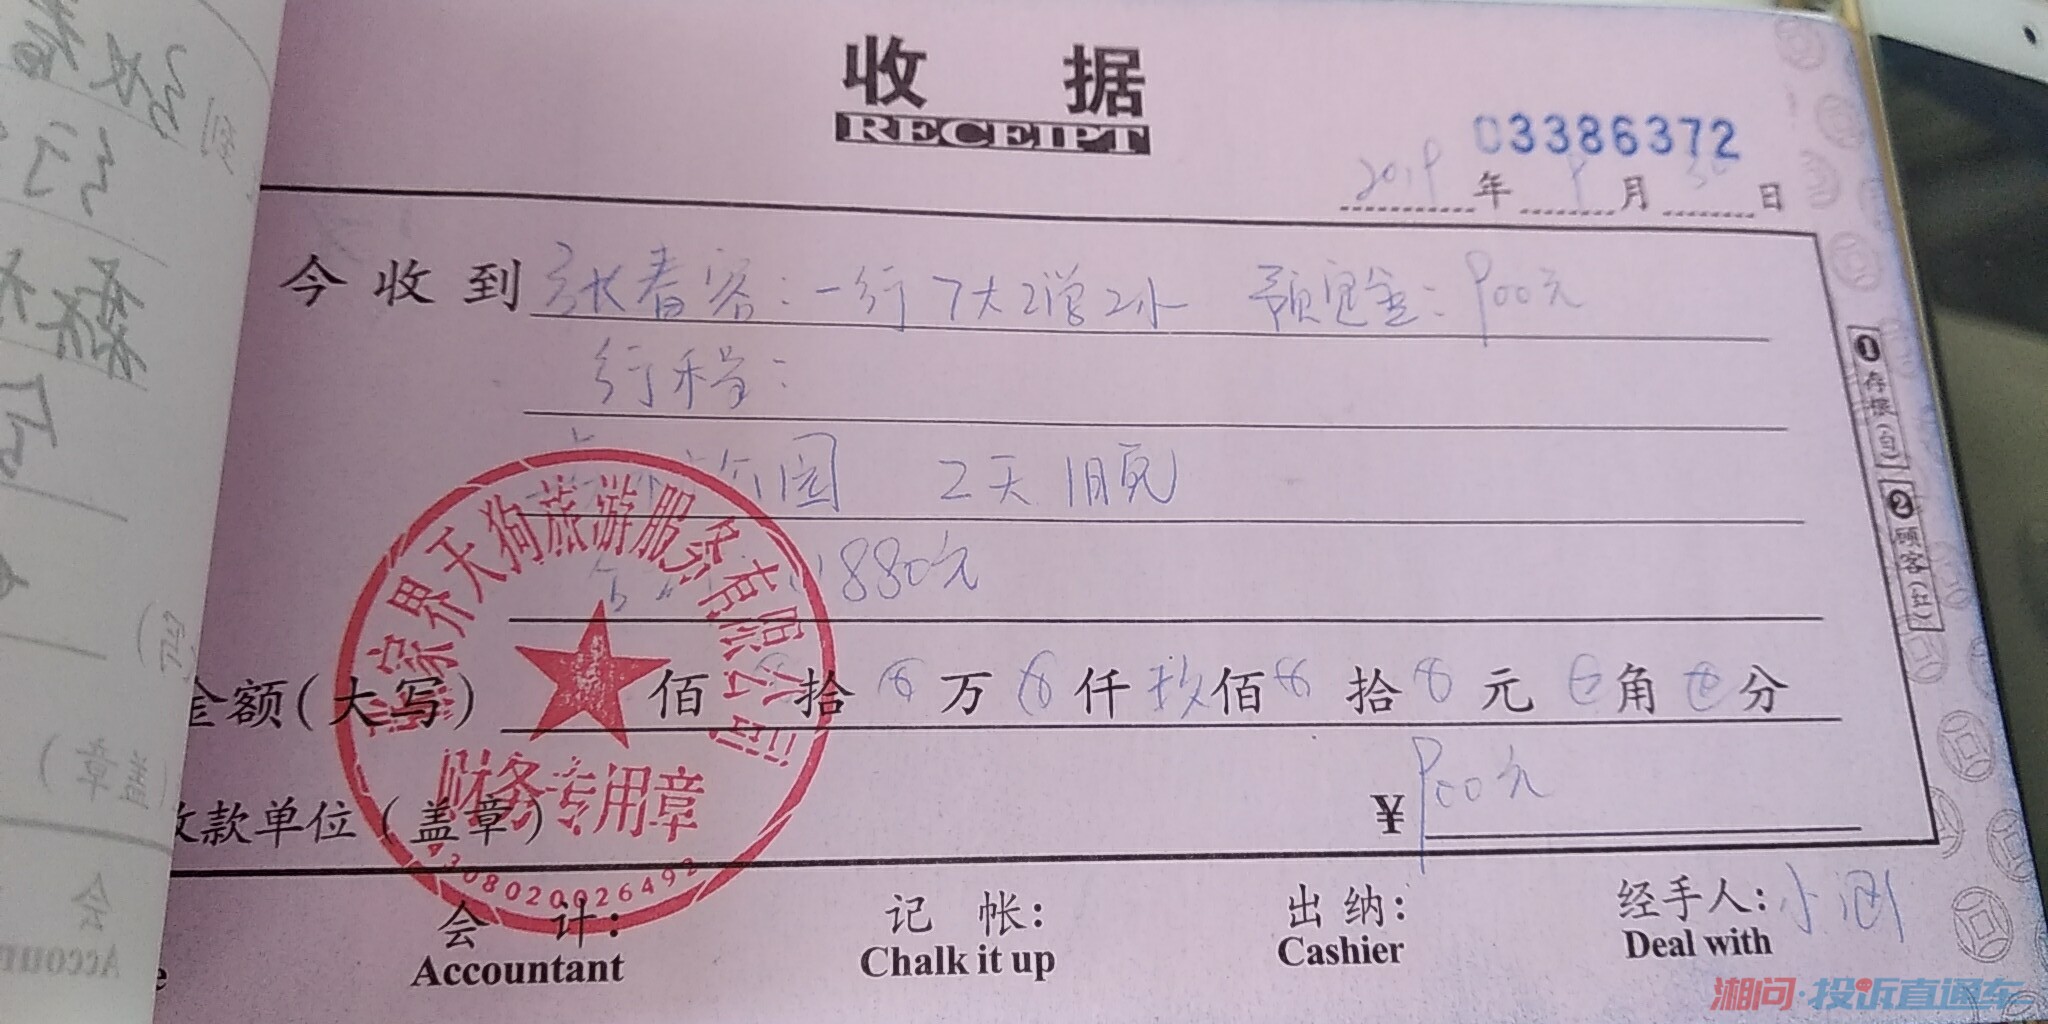 收 据
RECEIPT
03386372
2019 年 9 月 30 日
今收到 张春容：一行7大2增2小 预定金：900元
行程：
园 2天1晚
1880元
金额(大写) 佰 拾 万 仟 玖佰 拾 元 角 分
张家界天狗旅游服务有限公司
财务专用章
4308020026492
收款单位(盖章)
¥ 900元
❶存根(白)
❷顾客(红)
会 计:
Accountant
记 帐:
Chalk it up
出 纳:
Cashier
经手人: 小
Deal with
湘问·投诉直通车